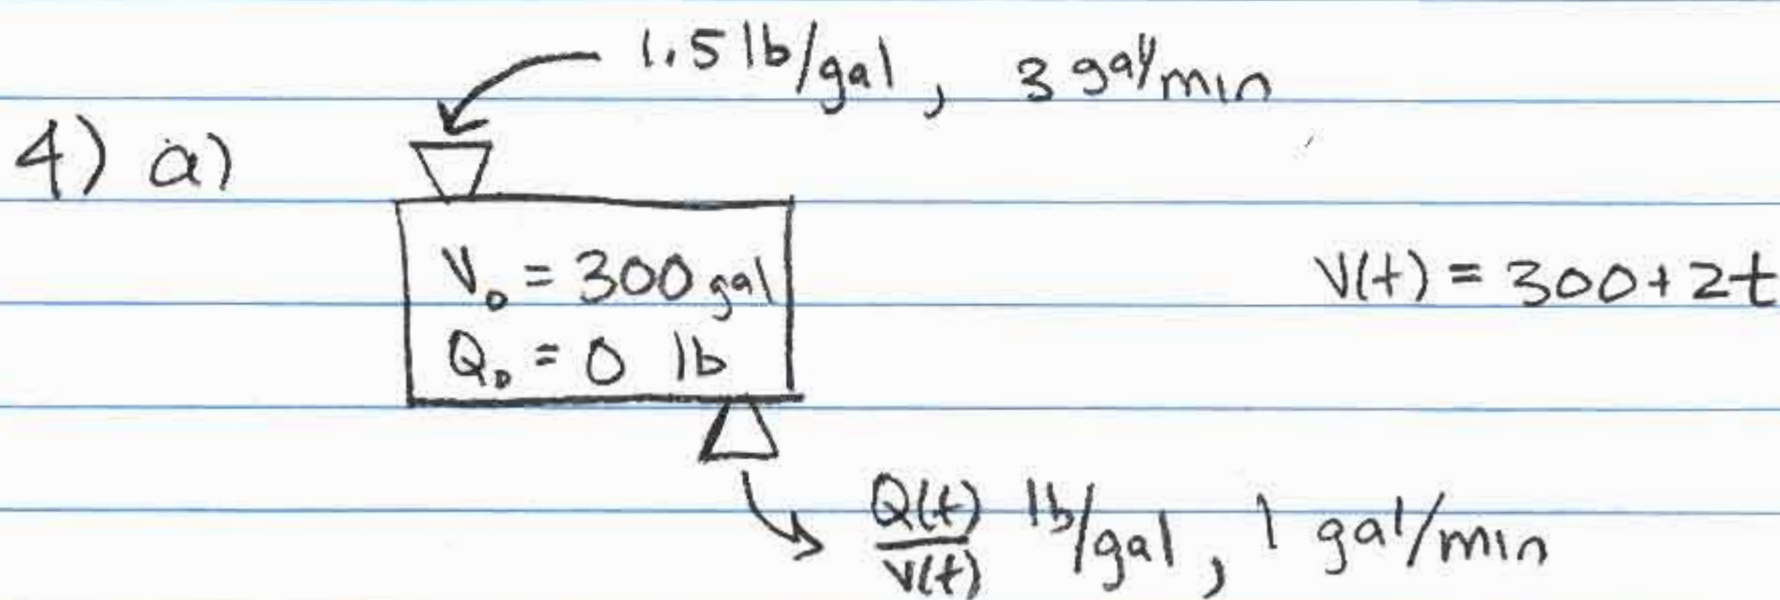 1.5 lb/gal, 3 gal/min
4) a)
V₀ = 300 gal
V(t) = 300 + 2t
Q₀ = 0 lb
Q(t)/V(t) lb/gal, 1 gal/min